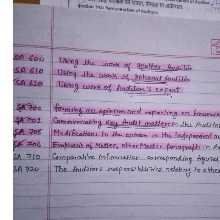 Section 143: Remuneration of Auditors
SA 600 Using the work of another Auditor
SA 610 Using the work of Internal Auditor
SA 620 Using work of Auditor's expert
SA 700 forming an opinion and reporting on financial
SA 701 Communicating Key Audit matters in the Auditor
SA 705 Modification to the opinion in the Independent au
SA 706 Emphasis of Matter, other Matter paragraph in A
SA 710 Comparative Information - corresponding figures
SA 720 The Auditor's responsibilities relating to other